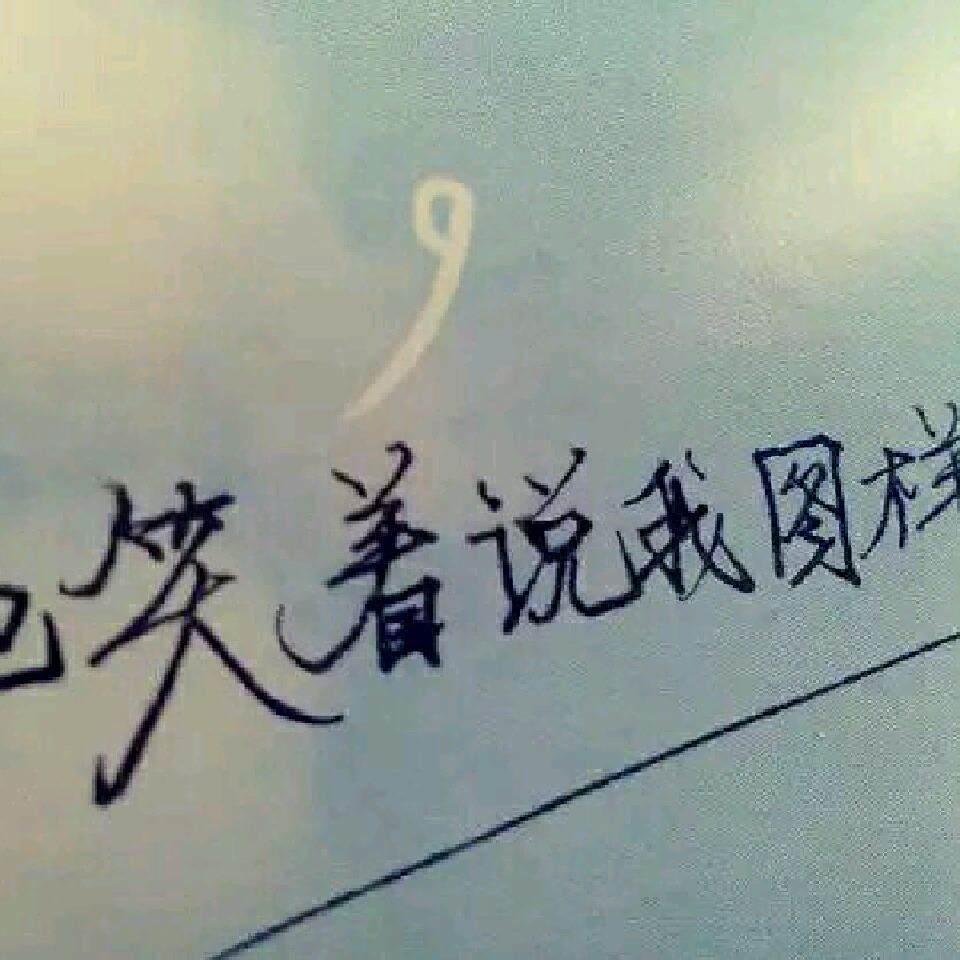 笑着说我图样